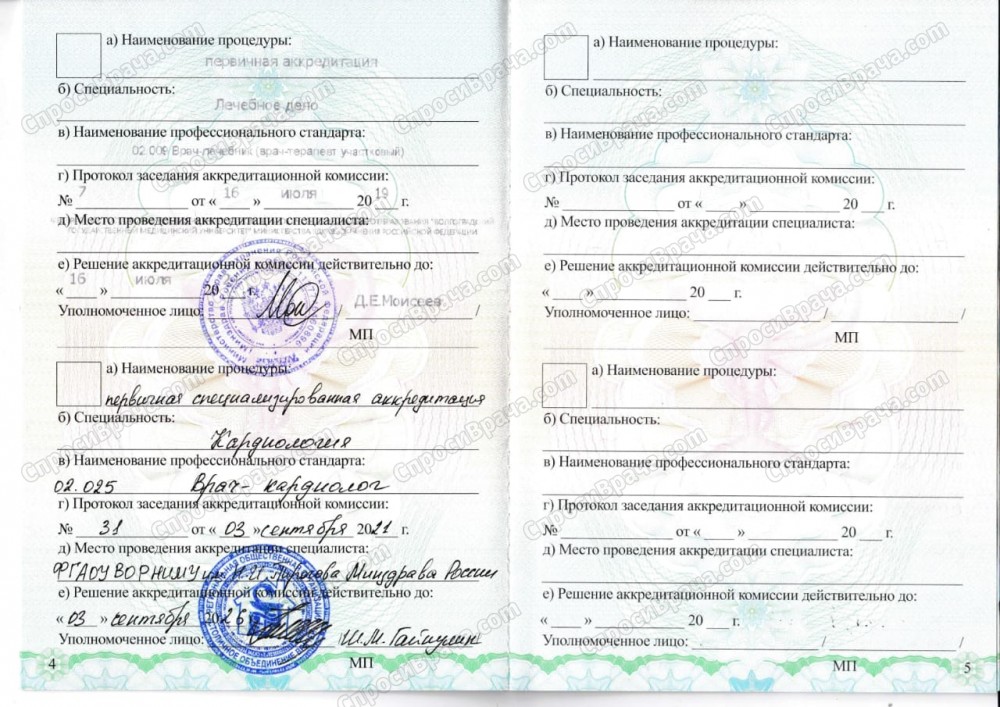 а) Наименование процедуры:
первичная аккредитация
б) Специальность:
Лечебное дело
в) Наименование профессионального стандарта:
02.009 Врач-лечебник (врач-терапевт участковый)
г) Протокол заседания аккредитационной комиссии:
№ 7 от « 16 » июля 20 19 г.
д) Место проведения аккредитации специалиста:
ГОСУДАРСТВЕННЫЙ МЕДИЦИНСКИЙ УНИВЕРСИТЕТ" МИНИСТЕРСТВА ЗДРАВООХРАНЕНИЯ РОССИЙСКОЙ ФЕДЕРАЦИИ
е) Решение аккредитационной комиссии действительно до:
« 16 » июля 20 г.
Уполномоченное лицо: / Д.Е.Моисеев /
МП
а) Наименование процедуры:
первичная специализированная аккредитация
б) Специальность:
Кардиология
в) Наименование профессионального стандарта:
02.025 Врач-кардиолог
г) Протокол заседания аккредитационной комиссии:
№ 31 от « 03 » сентября 2021 г.
д) Место проведения аккредитации специалиста:
ФГАОУ ВО РНИМУ им. Н.И. Пирогова Минздрава России
е) Решение аккредитационной комиссии действительно до:
« 03 » сентября 2026 г.
Уполномоченное лицо: / Ш.М. Гайнулин
4 МП
а) Наименование процедуры:
б) Специальность:
в) Наименование профессионального стандарта:
г) Протокол заседания аккредитационной комиссии:
№ от « » 20 г.
д) Место проведения аккредитации специалиста:
е) Решение аккредитационной комиссии действительно до:
« » 20 г.
Уполномоченное лицо: / /
МП
а) Наименование процедуры:
б) Специальность:
в) Наименование профессионального стандарта:
г) Протокол заседания аккредитационной комиссии:
№ от « » 20 г.
д) Место проведения аккредитации специалиста:
е) Решение аккредитационной комиссии действительно до:
« » 20 г.
Уполномоченное лицо: / /
МП 5
СпросиВрача.com